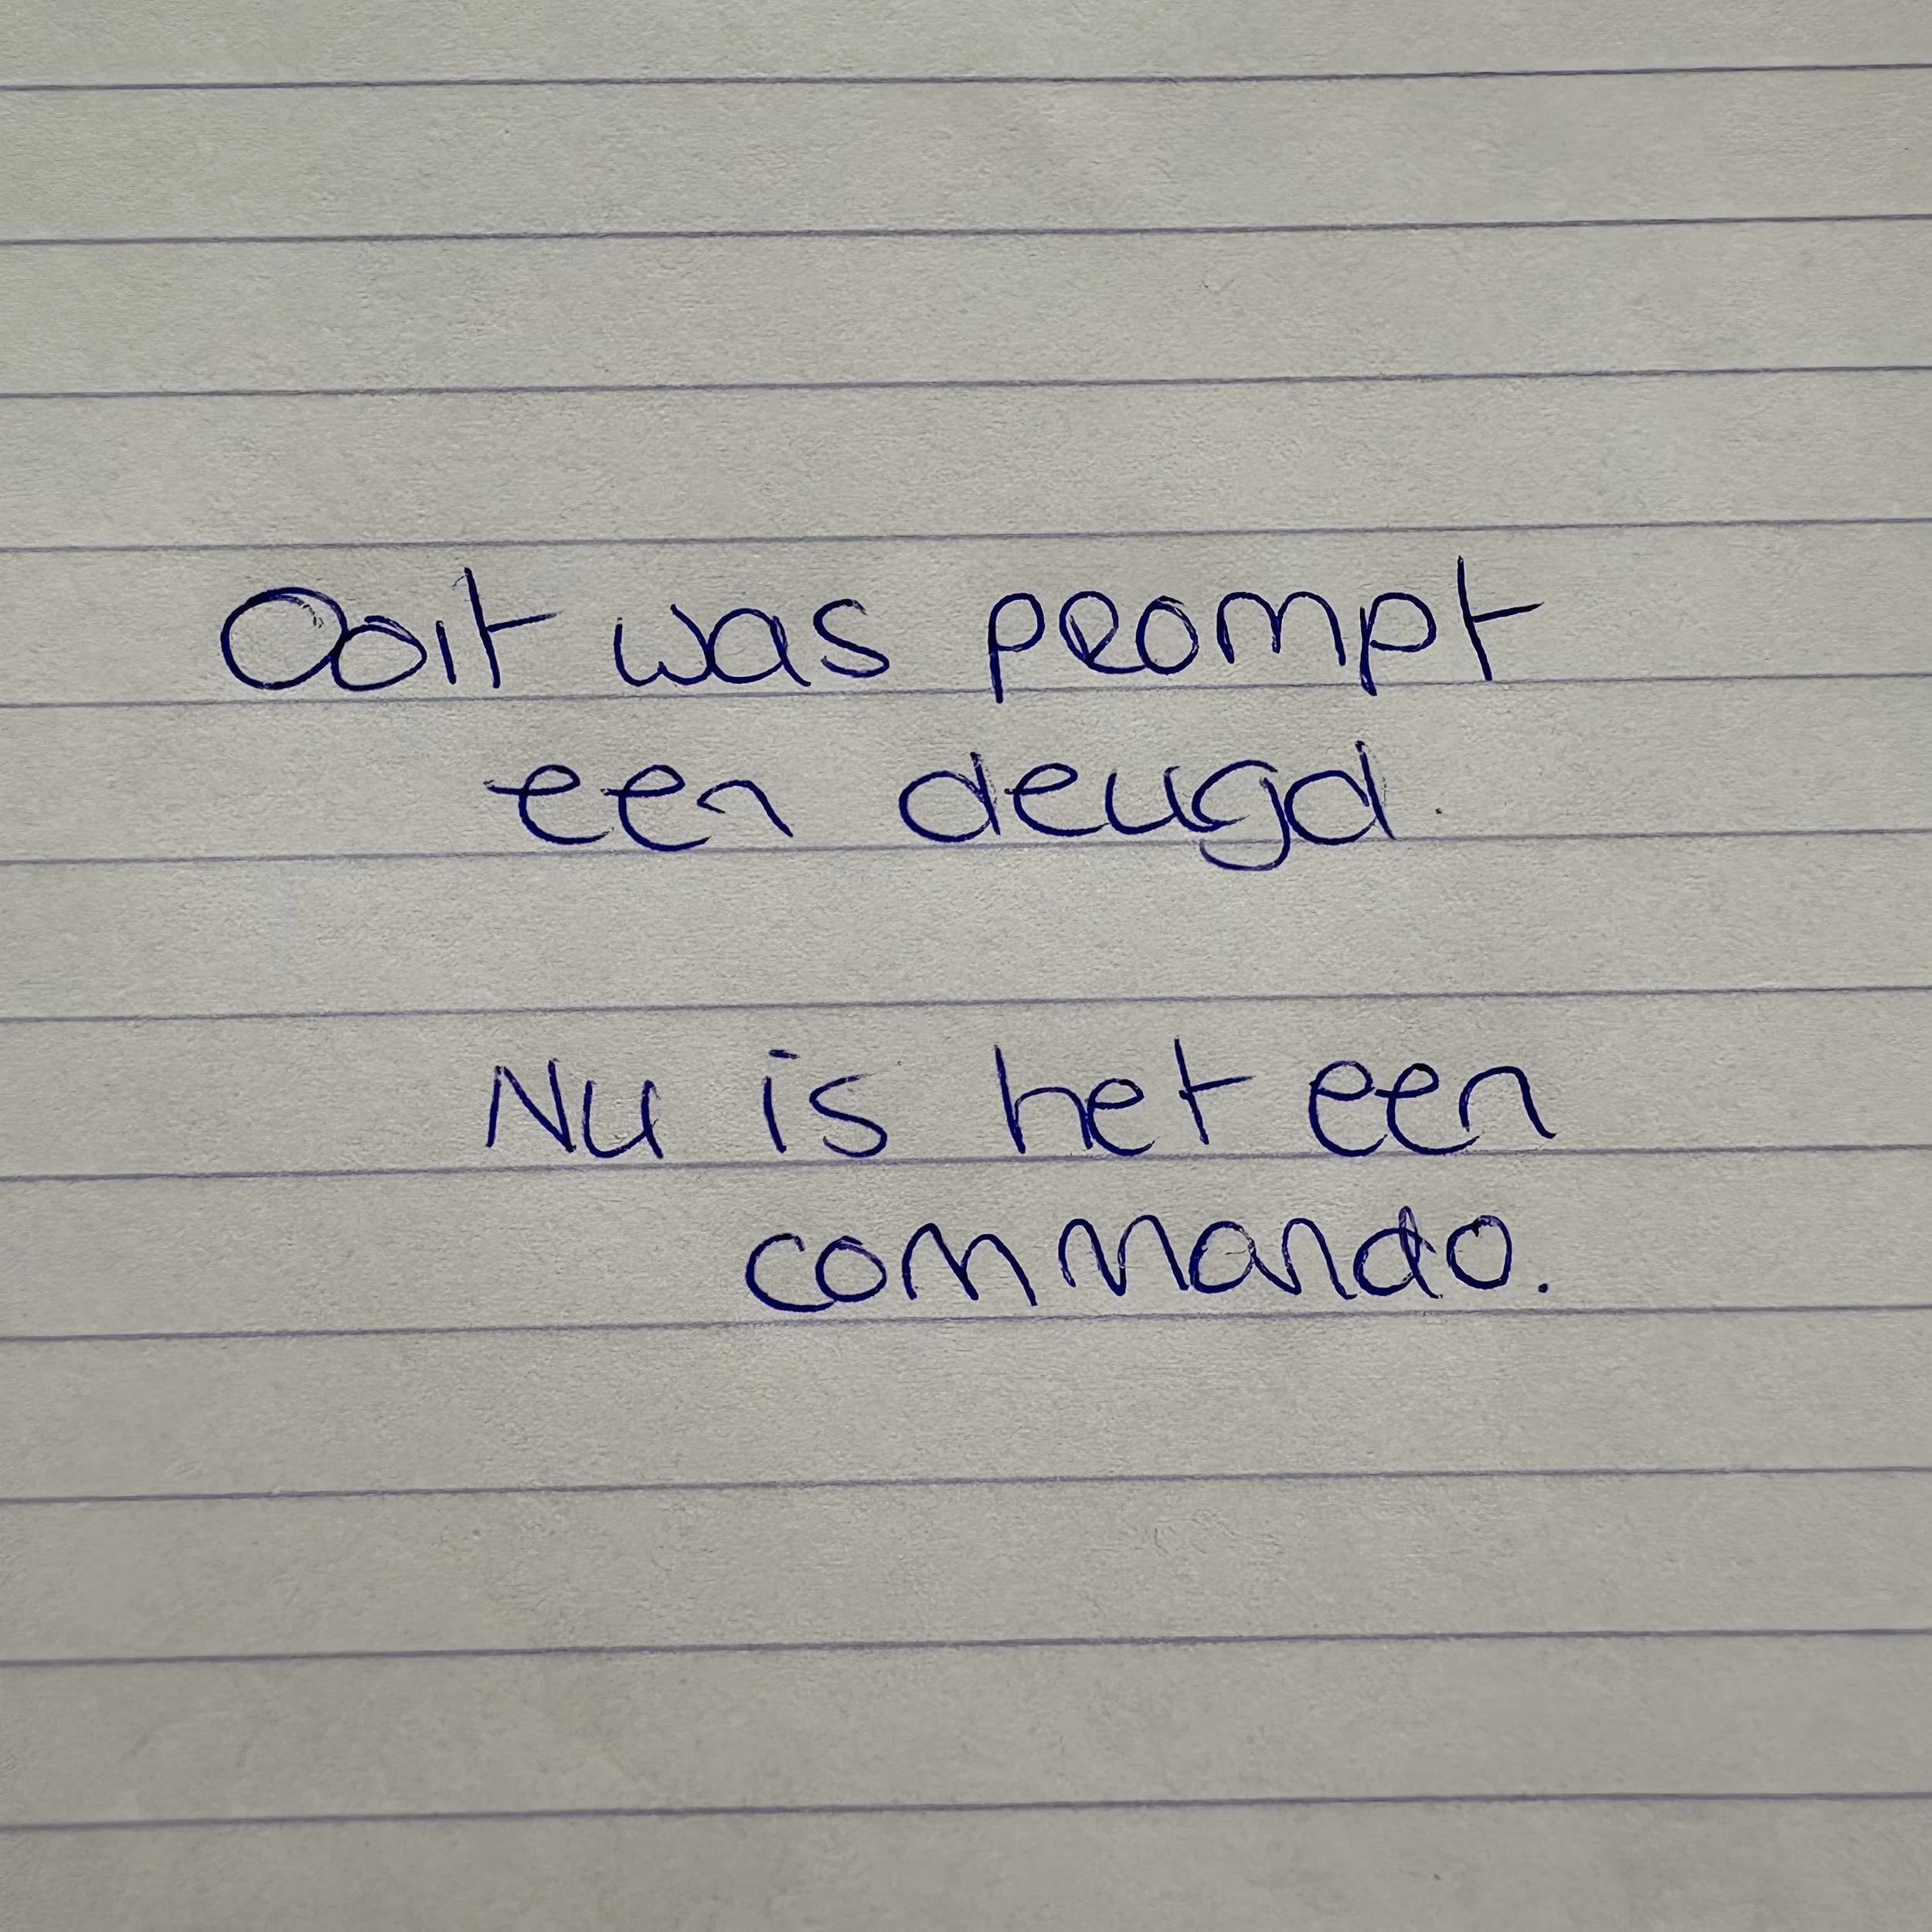 Ooit was prompt
een deugd.
Nu is het een
commando.